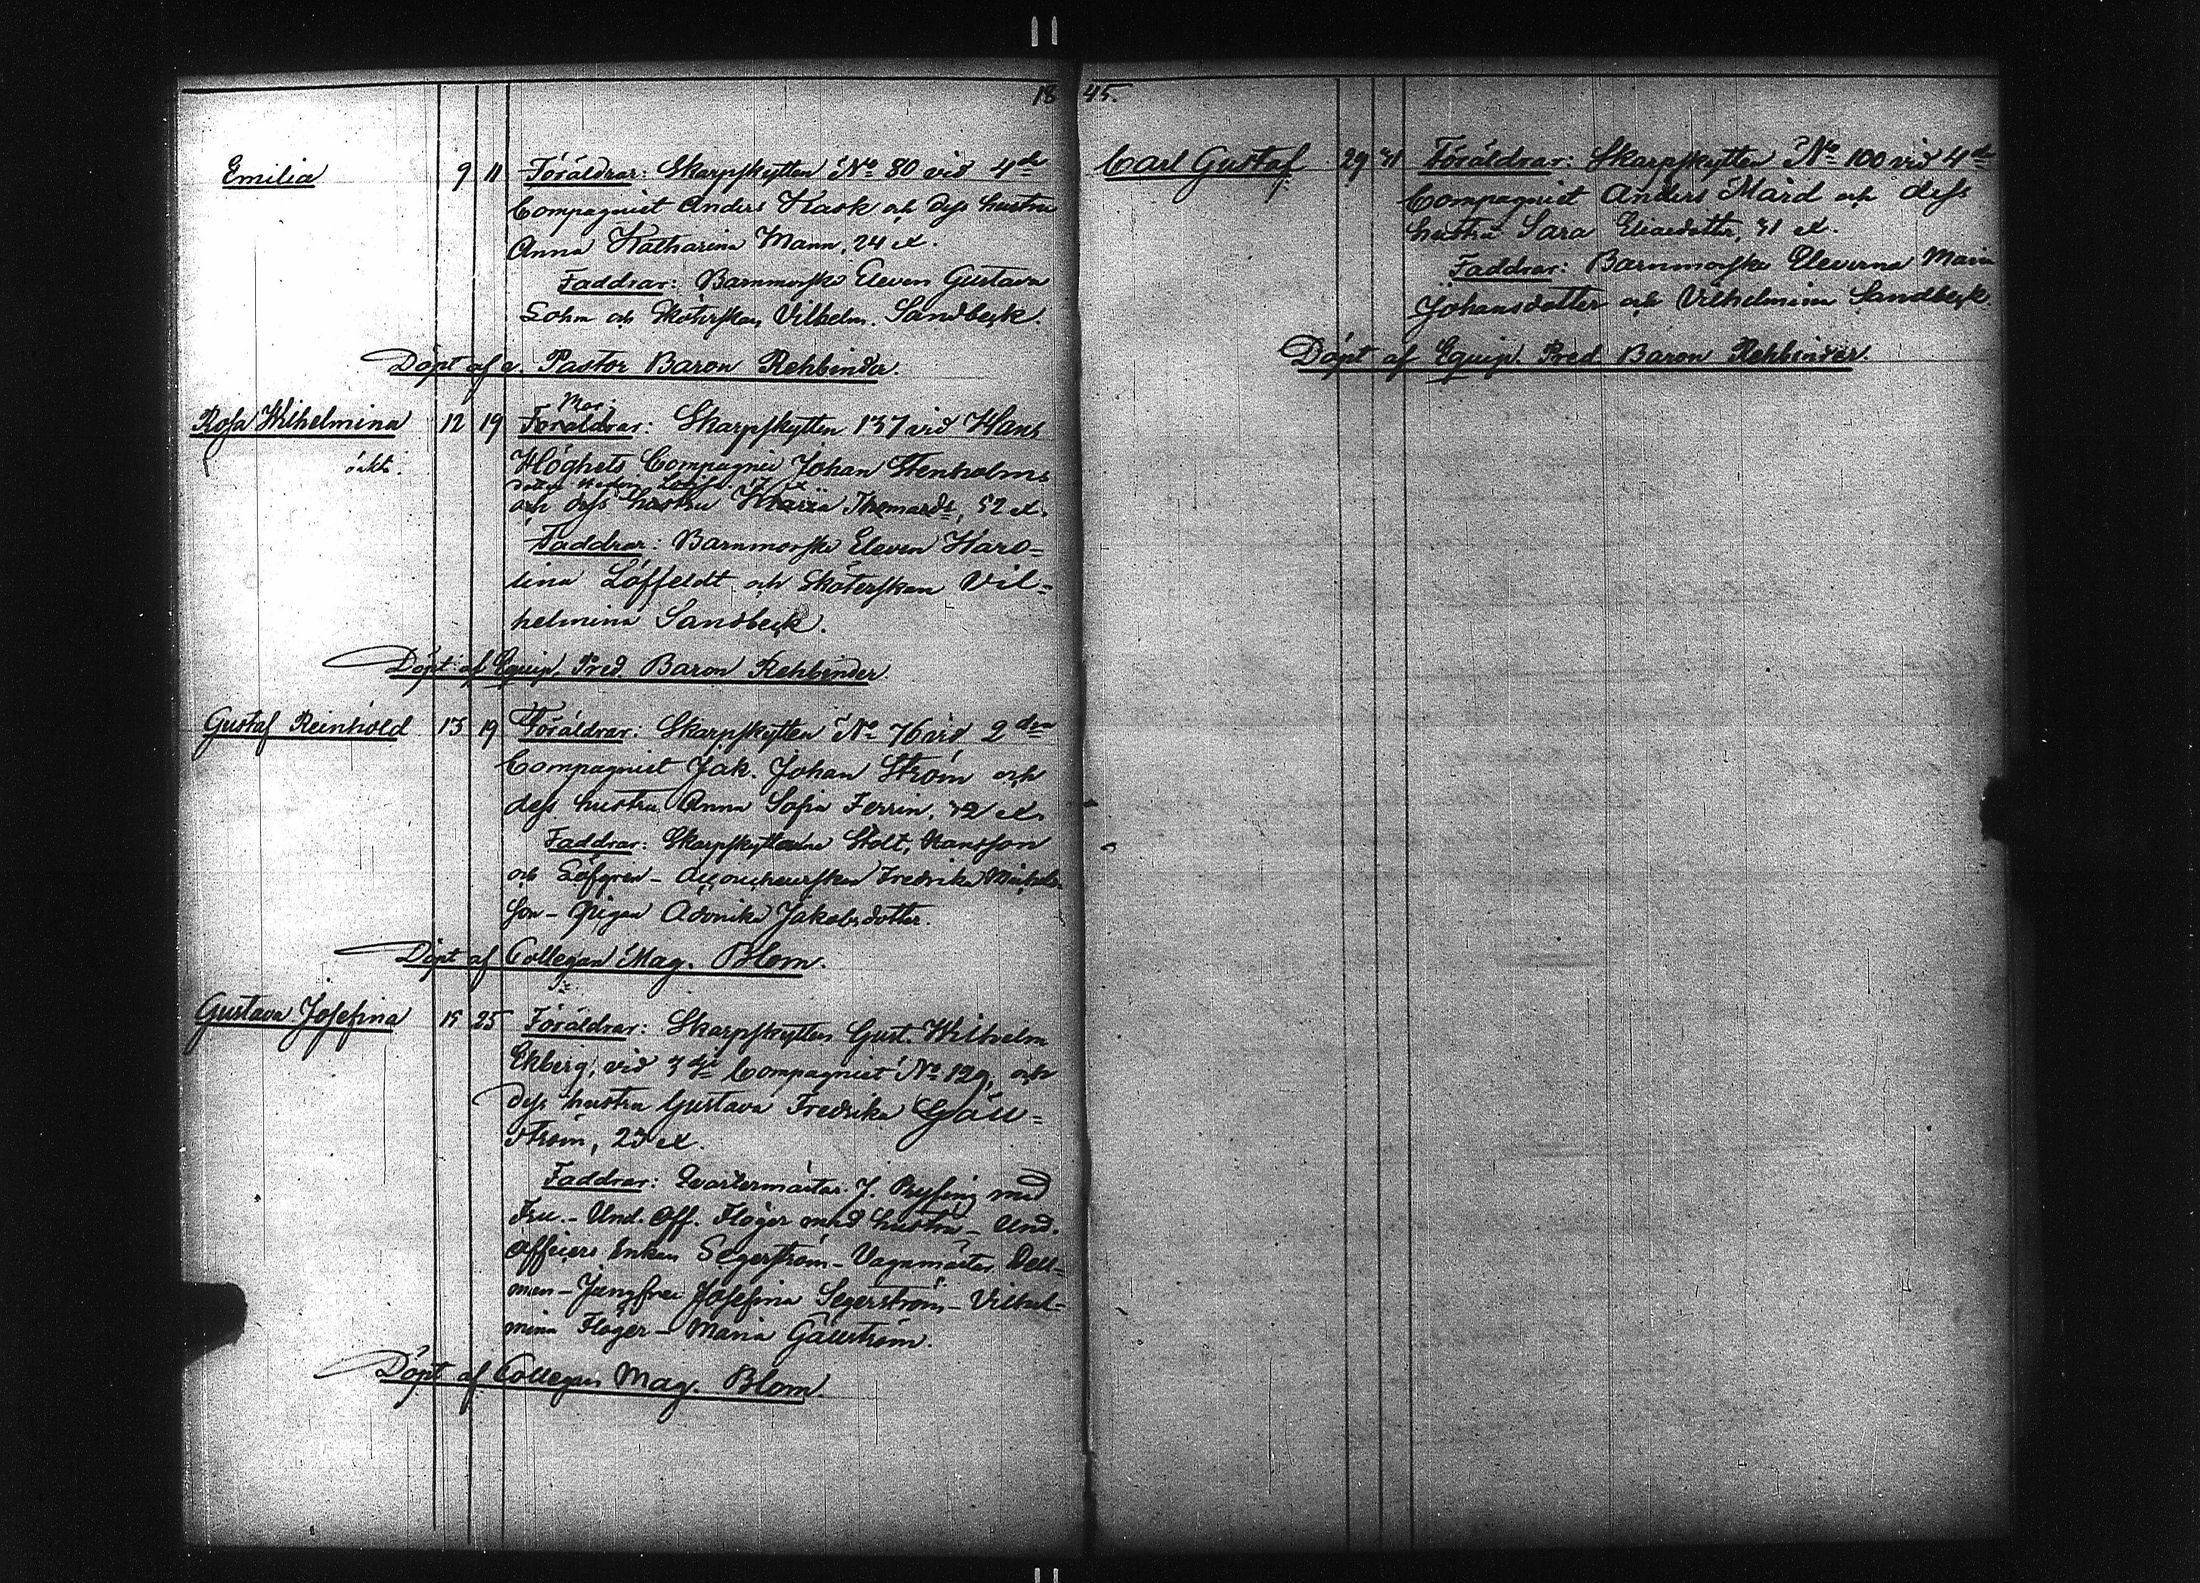 1845.
Emilia 9 11 Föräldrar: Skarpskytten No 80 vid 4de
Compagniet Anders Kask och dess hustru
Anna Katharina Mann, 24 et.
Faddrar: Barnmorske Eleven Gustava
Lohm och Sköterskan Vilhelm. Sandbeck.
Döpt af v. Pastor Baron Rehbinder.
Mor:
Rosa Wilhelmina 12 19 Föräldrar: Skarpskytten 137 vid Hans
oäkta. Höghets Compagnie Johan Stenholms
dotter Hedvig Lovisa
och dess hustru Maria Thomasdr, 52 et.
Faddrar: Barnmorske Eleven Karo=
lina Löffeldt och Sköterskan Vil=
helmina Sandbeck.
Döpt af Equip. Pred. Baron Rehbinder
Gustaf Reinhold 13 19 Föräldrar: Skarpskytten No 76 vid 2dra
Compagniet Jak. Johan Ström och
dess hustru Anna Sofia Ferrin, 32 et.
Faddrar: Skarpskyttarne Stolt, Hansson
och Löfgren – Accoucheurskan Fredrika Michels=
son – Pigan Adonika Jakobsdotter.
Döpt af Collegan Mag. Blom.
Gustava Josefina 15 25 Föräldrar: Skarpskytten Gust. Wilhelm
Ekberg, vid 3dje Compagniet No 129, och
dess hustru Gustava Fredrika Gäll=
ström, 23 et.
Faddrar: Qvartermästar. J. Ryssing med
Fru. – Und. Off. Flöger med hustru – Und.
officiers Enkan Segerström – Vagnmästar Dall=
man – Jungfru Josefina Segerström – Vilhel=
mina Flöger – Maria Gällström.
Döpt af Collegan Mag. Blom.
Carl Gustaf 29 31 Föräldrar: Skarpskytten No 100 vid 4de
Compagniet Anders Mård och dess
hustru Sara Eliaedotter, 31 et.
Faddrar: Barnmorske Eleverna Maria
Johansdotter och Vilhelmina Sandbeck.
Döpt af Equip. Pred. Baron Rehbinder.